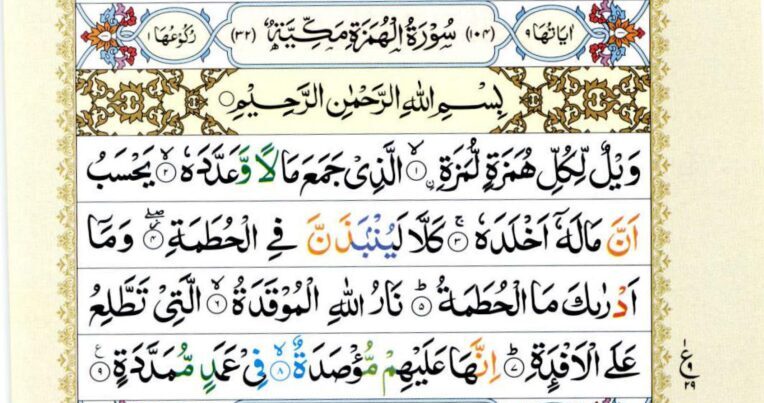 اٰیَاتُهَا ۹ (۱۰۴) سُوْرَةُ الْهُمَزَةِ مَكِّیَّةٌ (۳۲) رُكُوْعُهَا ۱
بِسْمِ اللّٰهِ الرَّحْمٰنِ الرَّحِیْمِ
وَیْلٌ لِّكُلِّ هُمَزَةٍ لُّمَزَةِ ۙ﻿۱ الَّذِیْ جَمَعَ مَالًا وَّعَدَّدَهٗ ۙ﻿۲ یَحْسَبُ
اَنَّ مَالَهٗۤ اَخْلَدَهٗ ۚ﻿۳ كَلَّا لَیُنْۢبَذَنَّ فِی الْحُطَمَةِ ۖ﻿۴ وَمَاۤ
اَدْرٰىكَ مَا الْحُطَمَةُ ؕ﻿۵ نَارُ اللّٰهِ الْمُوْقَدَةُ ۙ﻿۶ الَّتِیْ تَطَّلِعُ
عَلَی الْاَفْـِٕدَةِ ؕ﻿۷ اِنَّهَا عَلَیْهِمْ مُّؤْصَدَةٌ ۙ﻿۸ فِیْ عَمَدٍ مُّمَدَّدَةٍ ۹ ع
ع
۹
۲۹